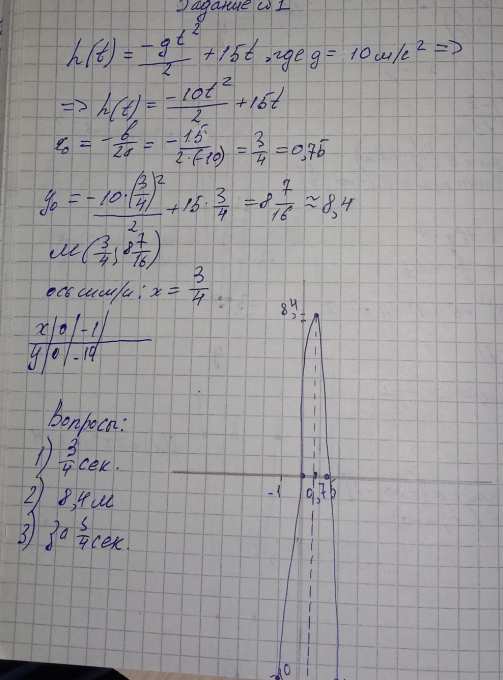 Задание №1
h(t) = -gt²/2 + 15t, где g = 10 м/с² =>
=> h(t) = -10t²/2 + 15t
x₀ = -b/2a = -15/2·(-10) = 3/4 = 0,75
y₀ = -10·(3/4)²/2 + 15·3/4 = 8 7/16 ≈ 8,4
M(3/4; 8 7/16)
ось сим/и: x = 3/4
x | 0 | -1 |
y | 0 |
8,4
Вопросы:
1) 3/4 сек.
2) 8,4 м
3) За 3/4 сек.
-1 0,75